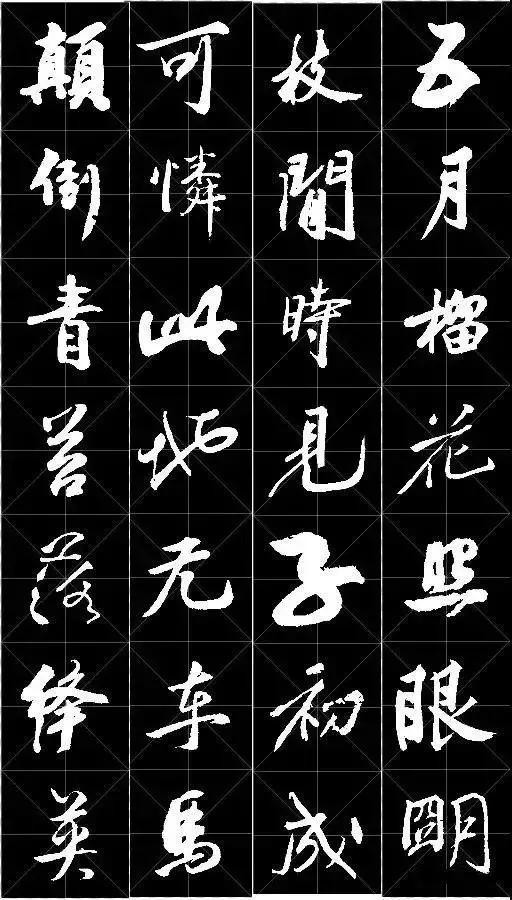 五月榴花照眼明
枝間時見子初成
可憐此地无车馬
顛倒青苔落绛英